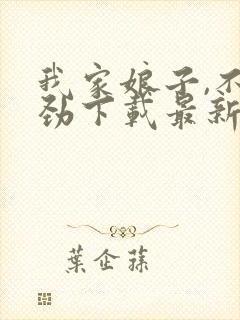 我家娘子,不
劲下载最新
葉企蓀